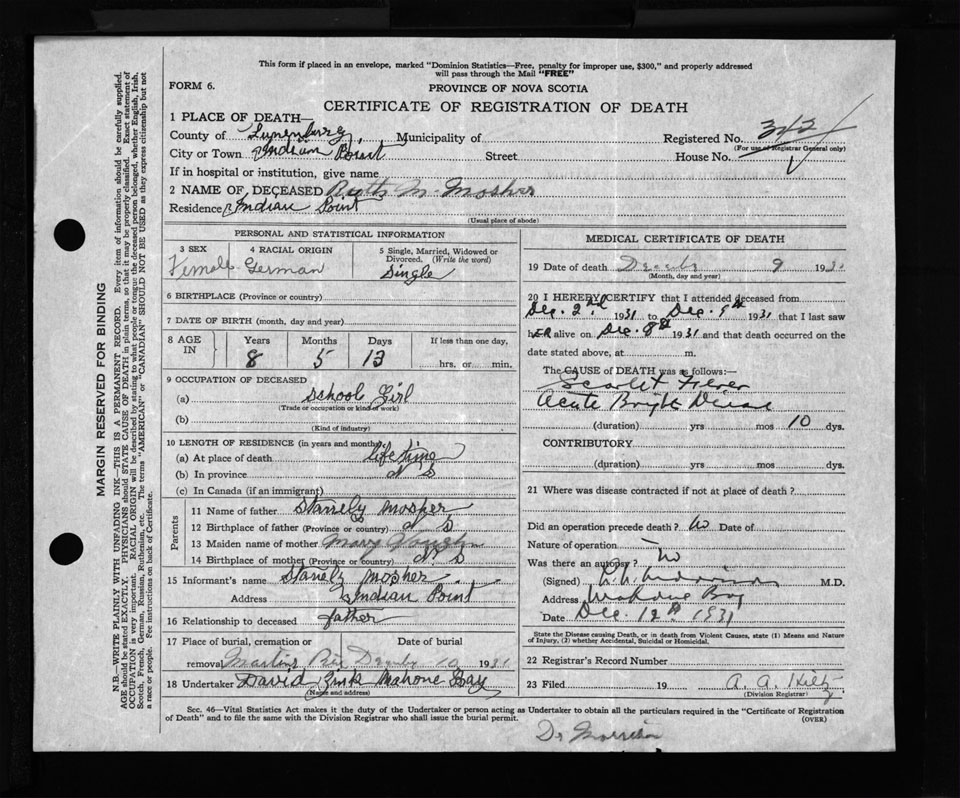 This form if placed in an envelope, marked "Dominion Statistics—Free, penalty for improper use, $300," and properly addressed
will pass through the Mail "FREE"
FORM 6.
PROVINCE OF NOVA SCOTIA
CERTIFICATE OF REGISTRATION OF DEATH
1 PLACE OF DEATH—
County of Lunenburg Municipality of Registered No. 342
(For use of Registrar General only)
City or Town Indian Point Street House No.
If in hospital or institution, give name
2 NAME OF DECEASED Ruth M. Mosher
Residence Indian Point
(Usual place of abode)
PERSONAL AND STATISTICAL INFORMATION
3 SEX 4 RACIAL ORIGIN 5 Single, Married, Widowed or Divorced. (Write the word)
Female German Single
6 BIRTHPLACE (Province or country)
7 DATE OF BIRTH (month, day and year)
8 AGE IN Years Months Days If less than one day,
8 5 13 hrs. or min.
9 OCCUPATION OF DECEASED
(a) School Girl
(Trade or occupation or kind of work)
(b)
(Kind of industry)
10 LENGTH OF RESIDENCE (in years and months)
(a) At place of death life time
(b) In province N S
(c) In Canada (if an immigrant)
Parents
11 Name of father Stanely Mosher
12 Birthplace of father (Province or country) N S
13 Maiden name of mother Mary
14 Birthplace of mother (Province or country) N. S
15 Informant's name Stanely Mosher
Address Indian Point
16 Relationship to deceased father
17 Place of burial, cremation or removal Date of burial
Martins 10 1931
18 Undertaker David Zink Mahone Bay
(Name and address)
MEDICAL CERTIFICATE OF DEATH
19 Date of death 9 1931
(Month, day and year)
20 I HEREBY CERTIFY that I attended deceased from
Dec. 2nd 1931 to Dec. 9th 1931 that I last saw
her alive on Dec. 8th 1931 and that death occurred on the
date stated above, at m.
The CAUSE OF DEATH was as follows:
Scarlet Fever
Acute Bright Disease
(duration) yrs mos 10 dys.
CONTRIBUTORY
(duration) yrs mos dys.
21 Where was disease contracted if not at place of death?
Did an operation precede death? No Date of
Nature of operation
Was there an autopsy? No
(Signed) M.D.
Address Mahone Bay
Date Dec. 12th 1931
State the Disease causing Death, or in death from Violent Causes, state (1) Means and Nature
of Injury, (2) whether Accidental, Suicidal or Homicidal.
22 Registrar's Record Number
23 Filed 19 A. A. Hiltz
(Division Registrar)
Sec. 46—Vital Statistics Act makes it the duty of the Undertaker or person acting as Undertaker to obtain all the particulars required in the "Certificate of Registration
of Death" and to file the same with the Division Registrar who shall issue the burial permit. (OVER)
Dr Morrison
MARGIN RESERVED FOR BINDING
N.B.—WRITE PLAINLY WITH UNFADING INK—THIS IS A PERMANENT RECORD. Every item of information should be carefully supplied.
AGE should be stated EXACTLY. PHYSICIANS should STATE CAUSE OF DEATH in plain terms, so that it may be properly classified. Exact statement of
OCCUPATION is very important. RACIAL ORIGIN will be described by stating to what people or tongue the deceased person belonged, whether English, Irish,
Scotch, French, German, Russian, Ruthenian, etc. The terms "AMERICAN" or "CANADIAN" SHOULD NOT BE USED as they express citizenship but not
a race or people. See instructions on back of Certificate.